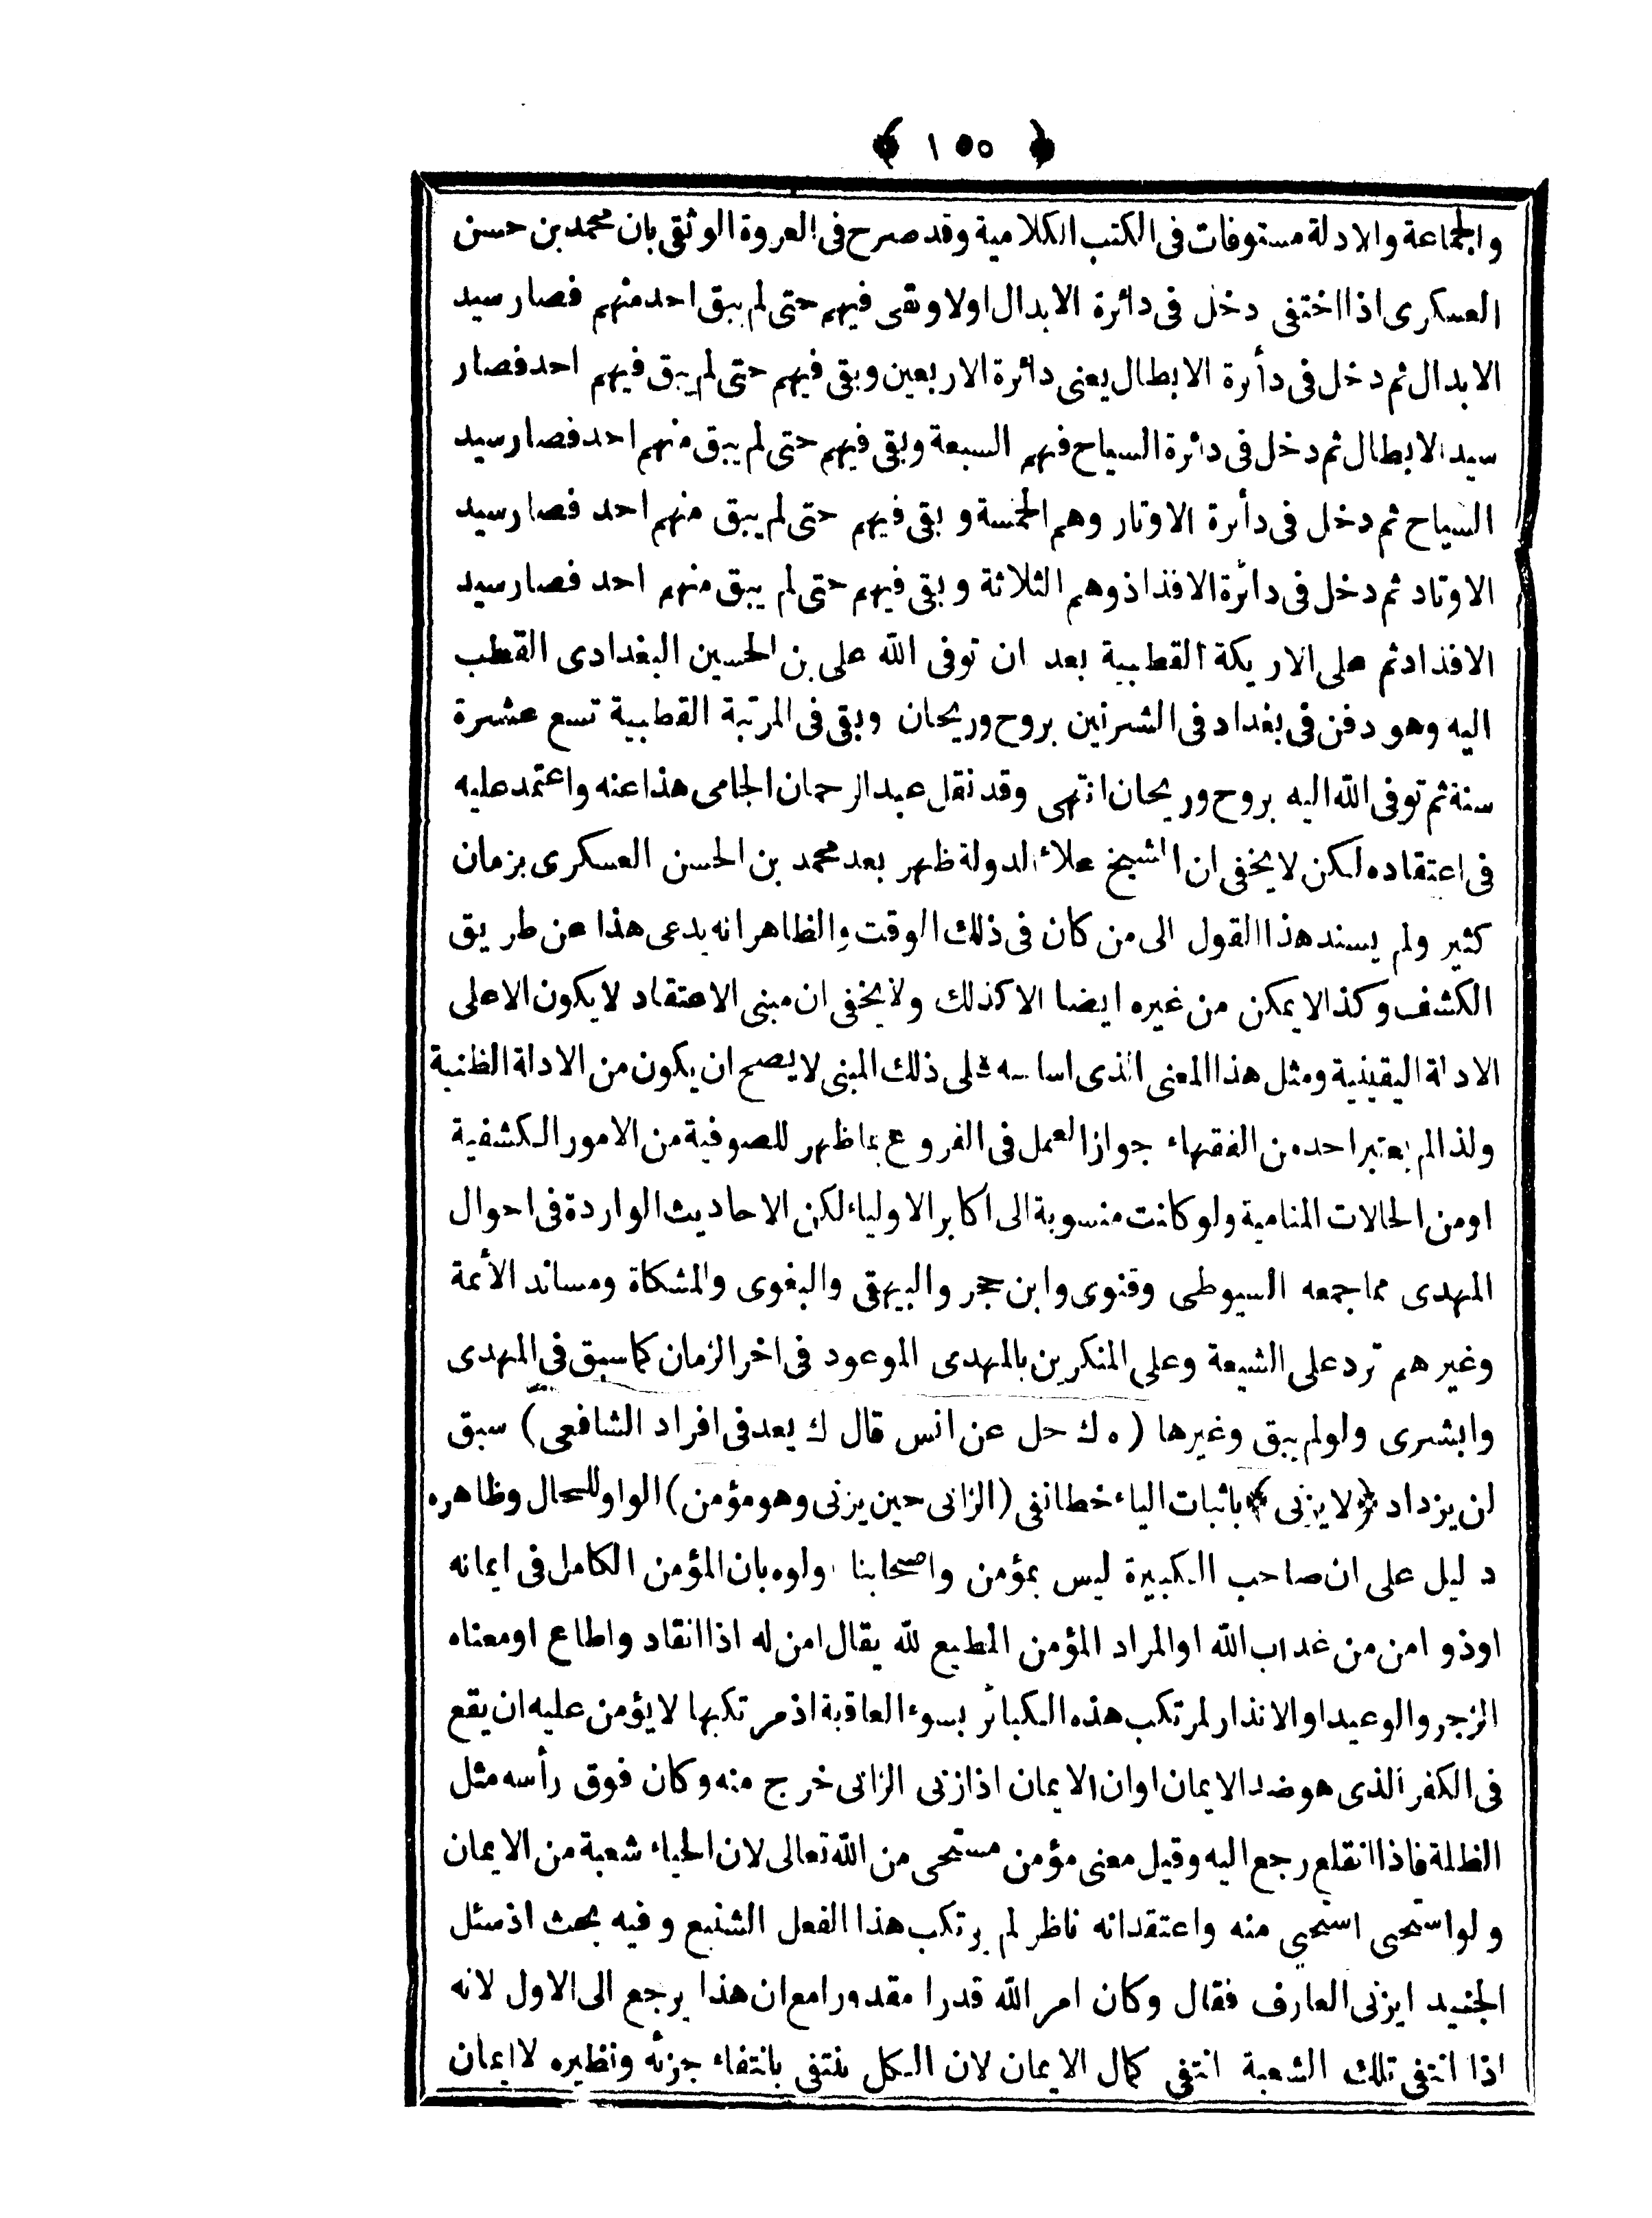 ﴿ ١٥٥ ﴾
والجماعة والادلة مستوفات فى الكتب الكلامية وقد صرح فى العروة الوثقى بان محمد بن حسن
العسكرى اذا اختفى دخل فى دائرة الابدال اولا وبقى فيهم حتى لم يبق احد منهم فصار سيد
الابدال ثم دخل فى دأئرة الابطال يعنى دائرة الاربعين وبقى فيهم حتى لم يبق فيهم احد فصار
سيد الابطال ثم دخل فى دائرة السياح فهم السبعة وبقى فيهم حتى لم يبق منهم احد فصار سيد
السياح ثم دخل فى دأئرة الاوتار وهم الخمسة وبقى فيهم حتى لم يبق منهم احد فصار سيد
الاوتاد ثم دخل فى دائرة الافذاذ وهم الثلاثة وبقى فيهم حتى لم يبق منهم احد فصار سيد
الافذاد ثم على الاريكة القطبية بعد ان توفى الله على بن الحسين البغدادى القطب
اليه وهو دفن فى بغداد فى الشرنين بروح وريحان وبقى فى المرتبة القطبية تسع عشرة
سنة ثم توفى الله اليه بروح وريحان انتهى وقد نقل عبد الرحمان الجامى هذا عنه واعتمد عليه
فى اعتقاده لكن لا يخفى ان الشيخ علاء الدولة ظهر بعد محمد بن الحسن العسكرى بزمان
كثير ولم يسند هذا القول الى من كان فى ذلك الوقت والظاهر انه يدعى هذا عن طريق
الكشف وكذا لا يمكن من غيره ايضا الا كذلك ولا يخفى ان مبنى الاعتقاد لا يكون الا على
الادلة اليقينية ومثل هذا المعنى الذى اساسه على ذلك المبنى لا يصح ان يكون من الادلة الظنية
ولذا لم يعتبر احد من الفقهاء جواز العمل فى الفروع بما ظهر للصوفية من الامور الكشفية
او من الحالات المنامية ولو كانت منسوبة الى اكابر الاولياء لكن الاحاديث الواردة فى احوال
المهدى مما جمعه السيوطى وقنوى وابن حجر والبيهقى والبغوى والمشكاة ومساند الأئمة
وغيرهم ترد على الشيعة وعلى المنكرين بالمهدى الموعود فى اخر الزمان كما سبق فى المهدى
وابشرى ولو لم يبق وغيرها (ه ك حل عن انس قال ك يعد فى افراد الشافعى) سبق
لن يزداد ﴿لا يزنى﴾ باثبات الياء خطا نفى (الزانى حين يزنى وهو مؤمن) الواو للحال وظاهره
دليل على ان صاحب الكبيرة ليس بمؤمن واصحابنا اولوه بان المؤمن الكامل فى ايمانه
او ذو امن من عذاب الله او المراد المؤمن المطيع لله يقال امن له اذا انقاد واطاع او معناه
الزجر والوعيد او الانذار لمرتكب هذه الكبائر بسوء العاقبة اذ مرتكبها لا يؤمن عليه ان يقع
فى الكفر الذى هو ضد الايمان او ان الايمان اذا زنى الزانى خرج منه وكان فوق رأسه مثل
الظلة فاذا انقلع رجع اليه وقيل معنى مؤمن مستحى من الله تعالى لان الحياء شعبة من الايمان
ولو استحى استحيي منه واعتقد انه ناظر لم يرتكب هذا الفعل الشنيع وفيه بحث اذ سئل
الجنيد ايزنى العارف فقال وكان امر الله قدرا مقدورا مع ان هذا يرجع الى الاول لانه
اذا انتفى تلك الشعبة انتفى كمال الايمان لان الكل ينتفى بانتفاء جزئه ونظيره لا ايمان